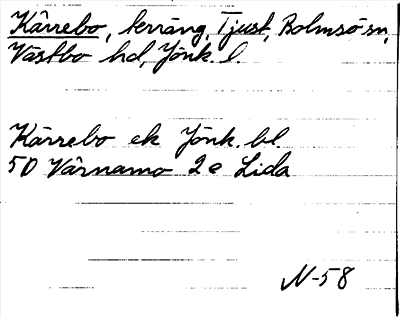 Kärrebo, terräng, Tjust, Bolmsö sn,
Västbo hd, Jönk. l.
Kärrebo ek Jönk. bl.
5D Värnamo 2e Lida
N-58